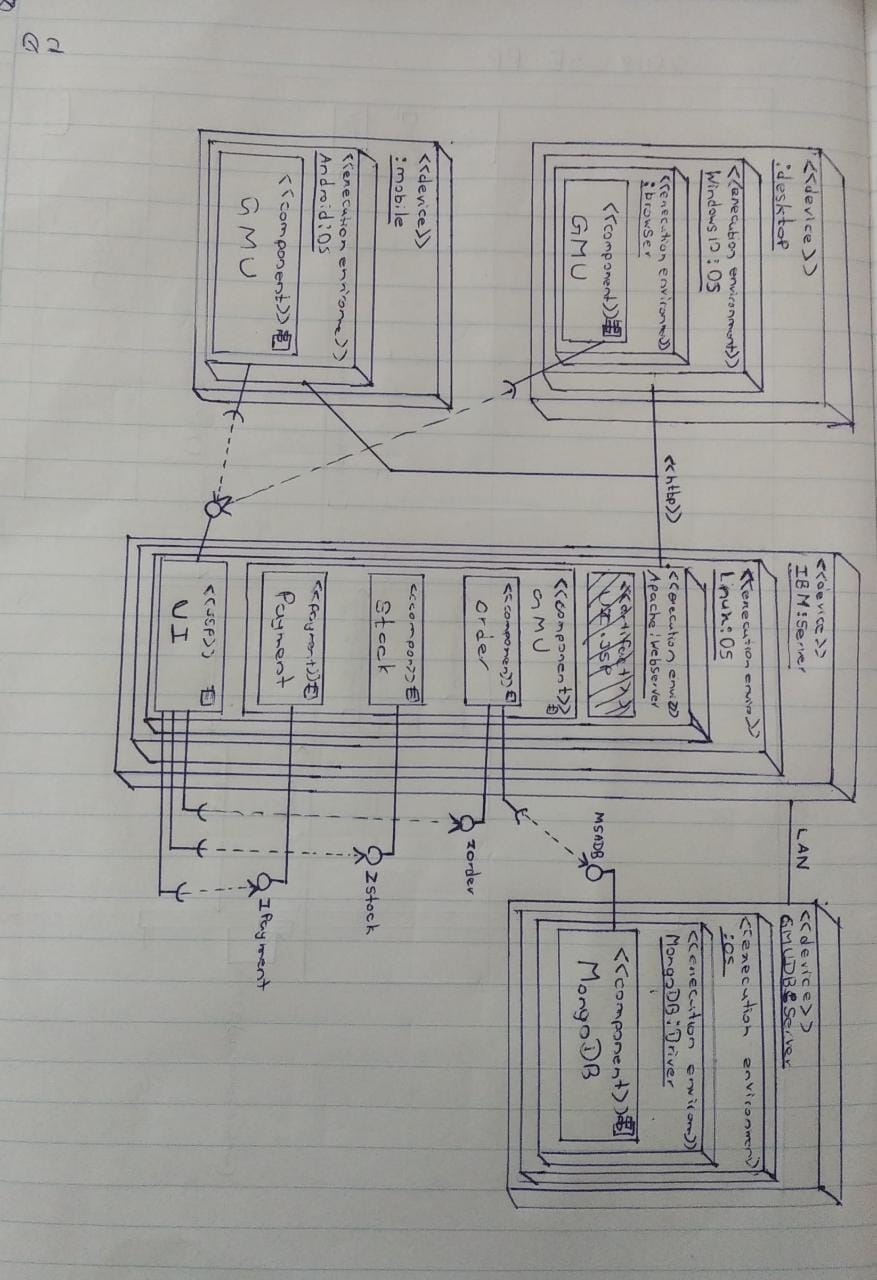 Q2
<<device>>
:desktop
<<execution environment>>
Windows10:OS
<<execution environme>>
:browser
<<component>>
GMU
<<device>>
:mobile
<<execution envirome>>
Android:OS
<<component>>
GMU
<<http>>
<<device>>
IBM:Server
<<execution enviro>>
Linux:OS
<<execution envi>>
Apache:webserver
<<artifact>>
.JSP
<<component>>
GMU
<<component>>
order
<<compon>>
Stock
<<Payment>>
Payment
<<JSP>>
UI
LAN
MSADB
Iorder
Istock
IPayment
<<device>>
GMUDB:Server
<<execution environment>>
:OS
<<execution environm>>
MongoDB:Driver
<<component>>
MongoDB